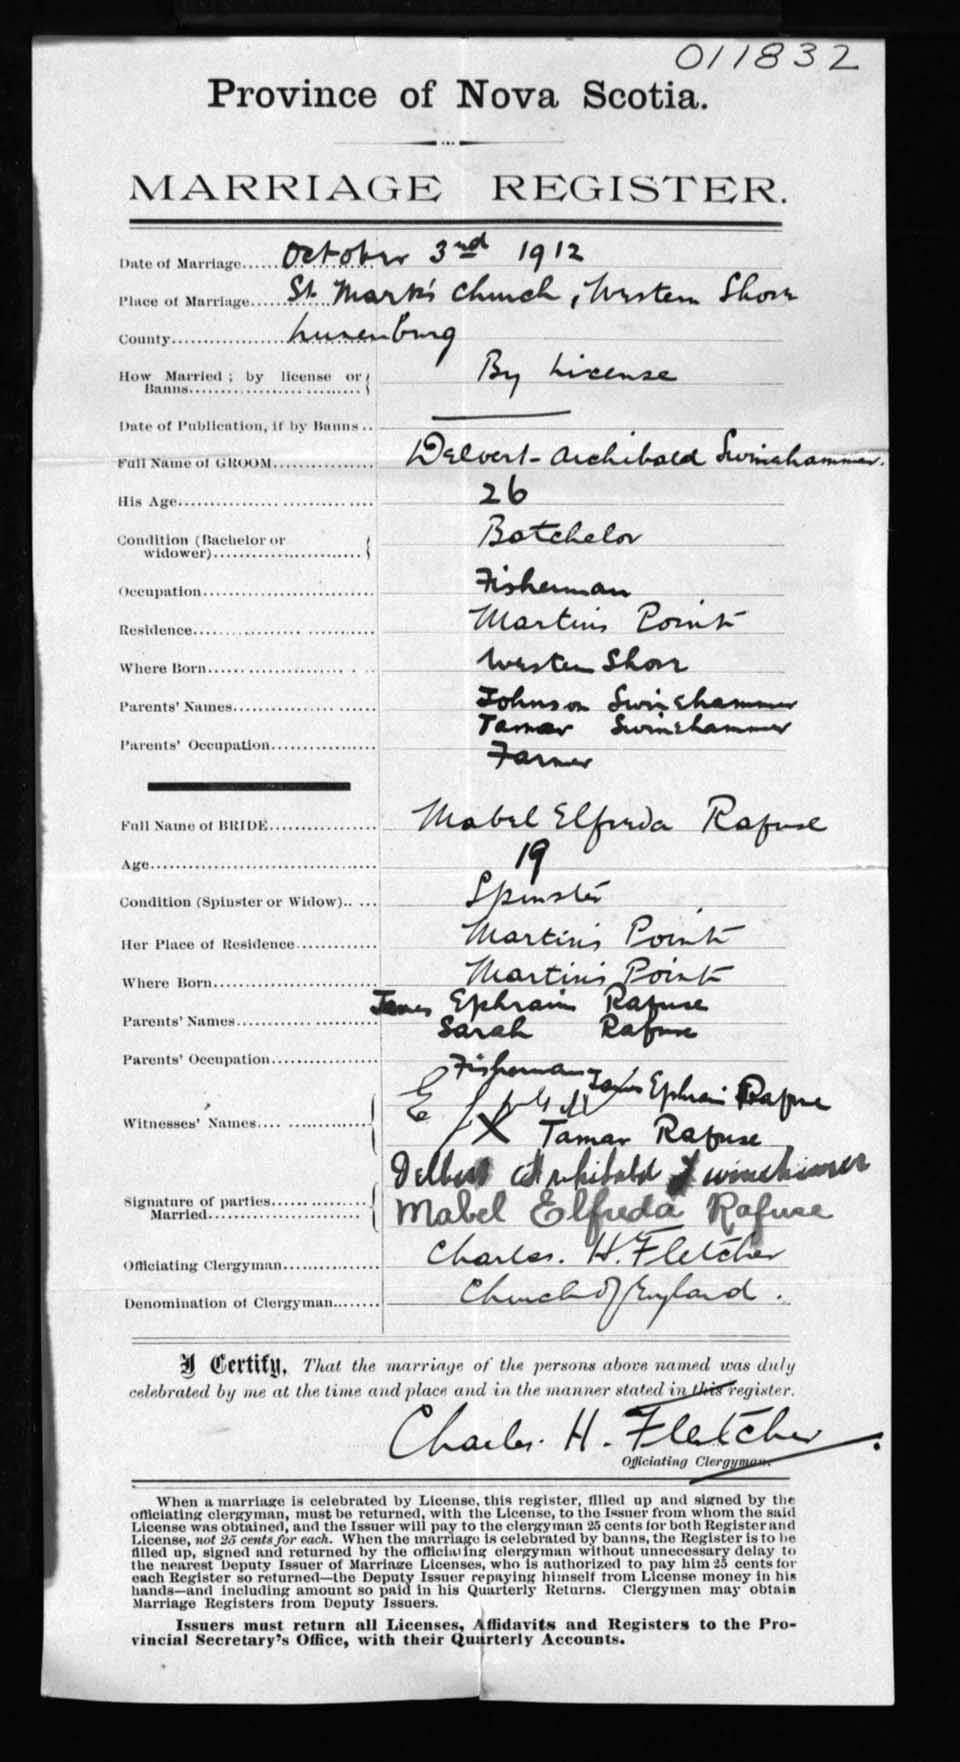 011832
Province of Nova Scotia.
MARRIAGE REGISTER.
Date of Marriage......October 3rd 1912
Place of Marriage......St Mark's Church, Western Shore
County......Lunenburg
How Married; by license or
Banns......By License
Date of Publication, if by Banns..
Full Name of GROOM......Delvert-Archibald Swinehammer.
His Age......26
Condition (Bachelor or
widower)......Batchelor
Occupation......Fisherman
Residence......Martins Point
Where Born......Western Shore
Parents' Names......Johnson Swinehammer
Tamar Swinehammer
Parents' Occupation......Farmer
Full Name of BRIDE......Mabel Elfreda Rafuse
Age......19
Condition (Spinster or Widow)......Spinster
Her Place of Residence......Martin's Point
Where Born......Martin's Point
Parents' Names......James Ephraim Rafuse
Sarah Rafuse
Parents' Occupation......Fisherman
James Ephraim Rafuse
Witnesses' Names......X Tamar Rafuse
Delbert Archibald Swinehimer
Signature of parties
Married......Mabel Elfreda Rafuse
Officiating Clergyman......Charles. H. Fletcher
Denomination of Clergyman......Church of England.
I Certify, That the marriage of the persons above named was duly
celebrated by me at the time and place and in the manner stated in this register.
Charles. H. Fletcher.
Officiating Clergyman.
When a marriage is celebrated by License, this register, filled up and signed by the
officiating clergyman, must be returned, with the License, to the Issuer from whom the said
License was obtained, and the Issuer will pay to the clergyman 25 cents for both Register and
License, not 25 cents for each. When the marriage is celebrated by banns, the Register is to be
filled up, signed and returned by the officiating clergyman without unnecessary delay to
the nearest Deputy Issuer of Marriage Licenses, who is authorized to pay him 25 cents for
each Register so returned—the Deputy Issuer repaying himself from License money in his
hands—and including amount so paid in his Quarterly Returns. Clergymen may obtain
Marriage Registers from Deputy Issuers.
Issuers must return all Licenses, Affidavits and Registers to the Pro-
vincial Secretary's Office, with their Quarterly Accounts.